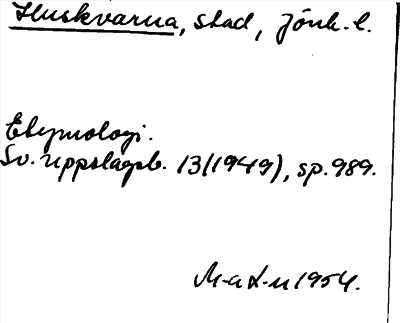 Huskvarna, stad, Jönk. l.
Etymologi.
Sv. uppslagsb. 13(1949), sp. 989.
M-a L-n 1954.